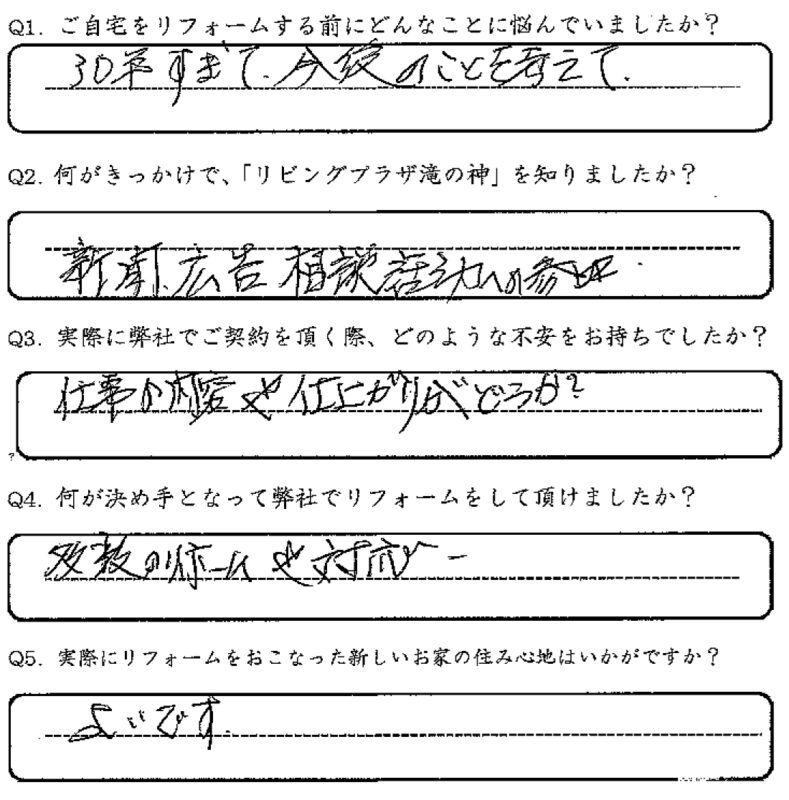 Q1. ご自宅をリフォームする前にどんなことに悩んでいましたか？
30年すぎて、今後のことを考えて.
Q2. 何がきっかけで、「リビングプラザ滝の神」を知りましたか？
新聞、広告 相談 活動への参加
Q3. 実際に弊社でご契約を頂く際、どのような不安をお持ちでしたか？
仕事の内容や仕上がりがどうか?
?
Q4. 何が決め手となって弊社でリフォームをして頂けましたか？
多数のリホームや対応が一
Q5. 実際にリフォームをおこなった新しいお家の住み心地はいかがですか？
よいです.